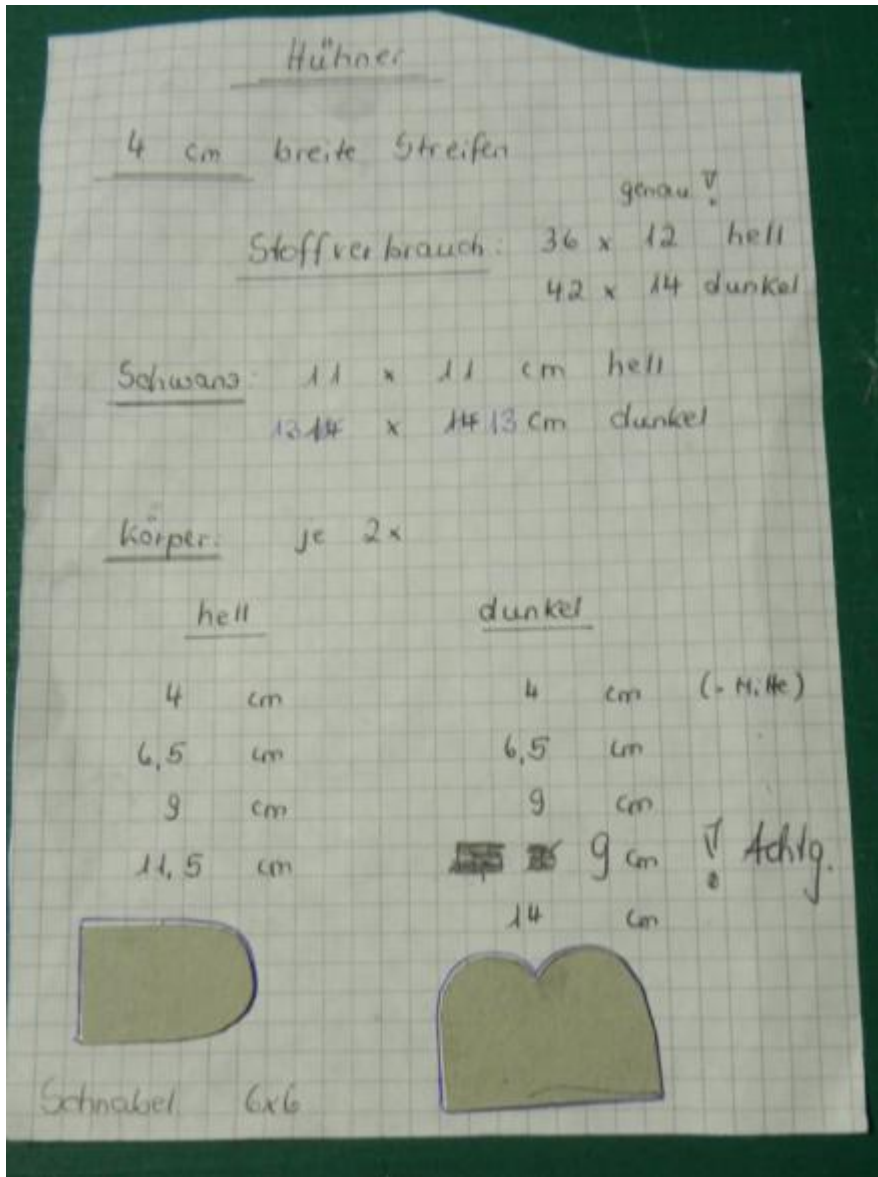 Hühner
4 cm breite Streifen
genau !
Stoffverbrauch: 36 x 12 hell
42 x 14 dunkel
Schwanz: 11 x 11 cm hell
13 14 x 14 13 cm dunkel
Körper: je 2x
hell dunkel
4 cm 4 cm (= Mitte)
6,5 cm 6,5 cm
9 cm 9 cm
11,5 cm 9 cm ! Achtg.
14 cm
Schnabel 6x6